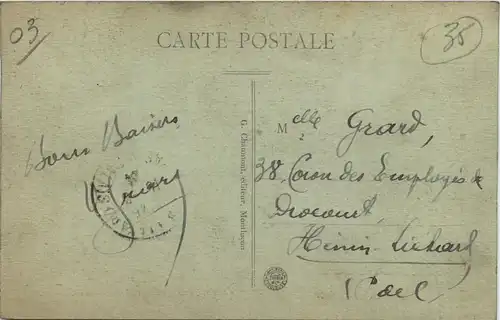 03
35
CARTE POSTALE
Bons Baisers
G. Chaumont, éditeur, Montluçon
Melle Grard,
38, Coron des Employés de
Drocourt,
Hénin-Liétard
(P de C)